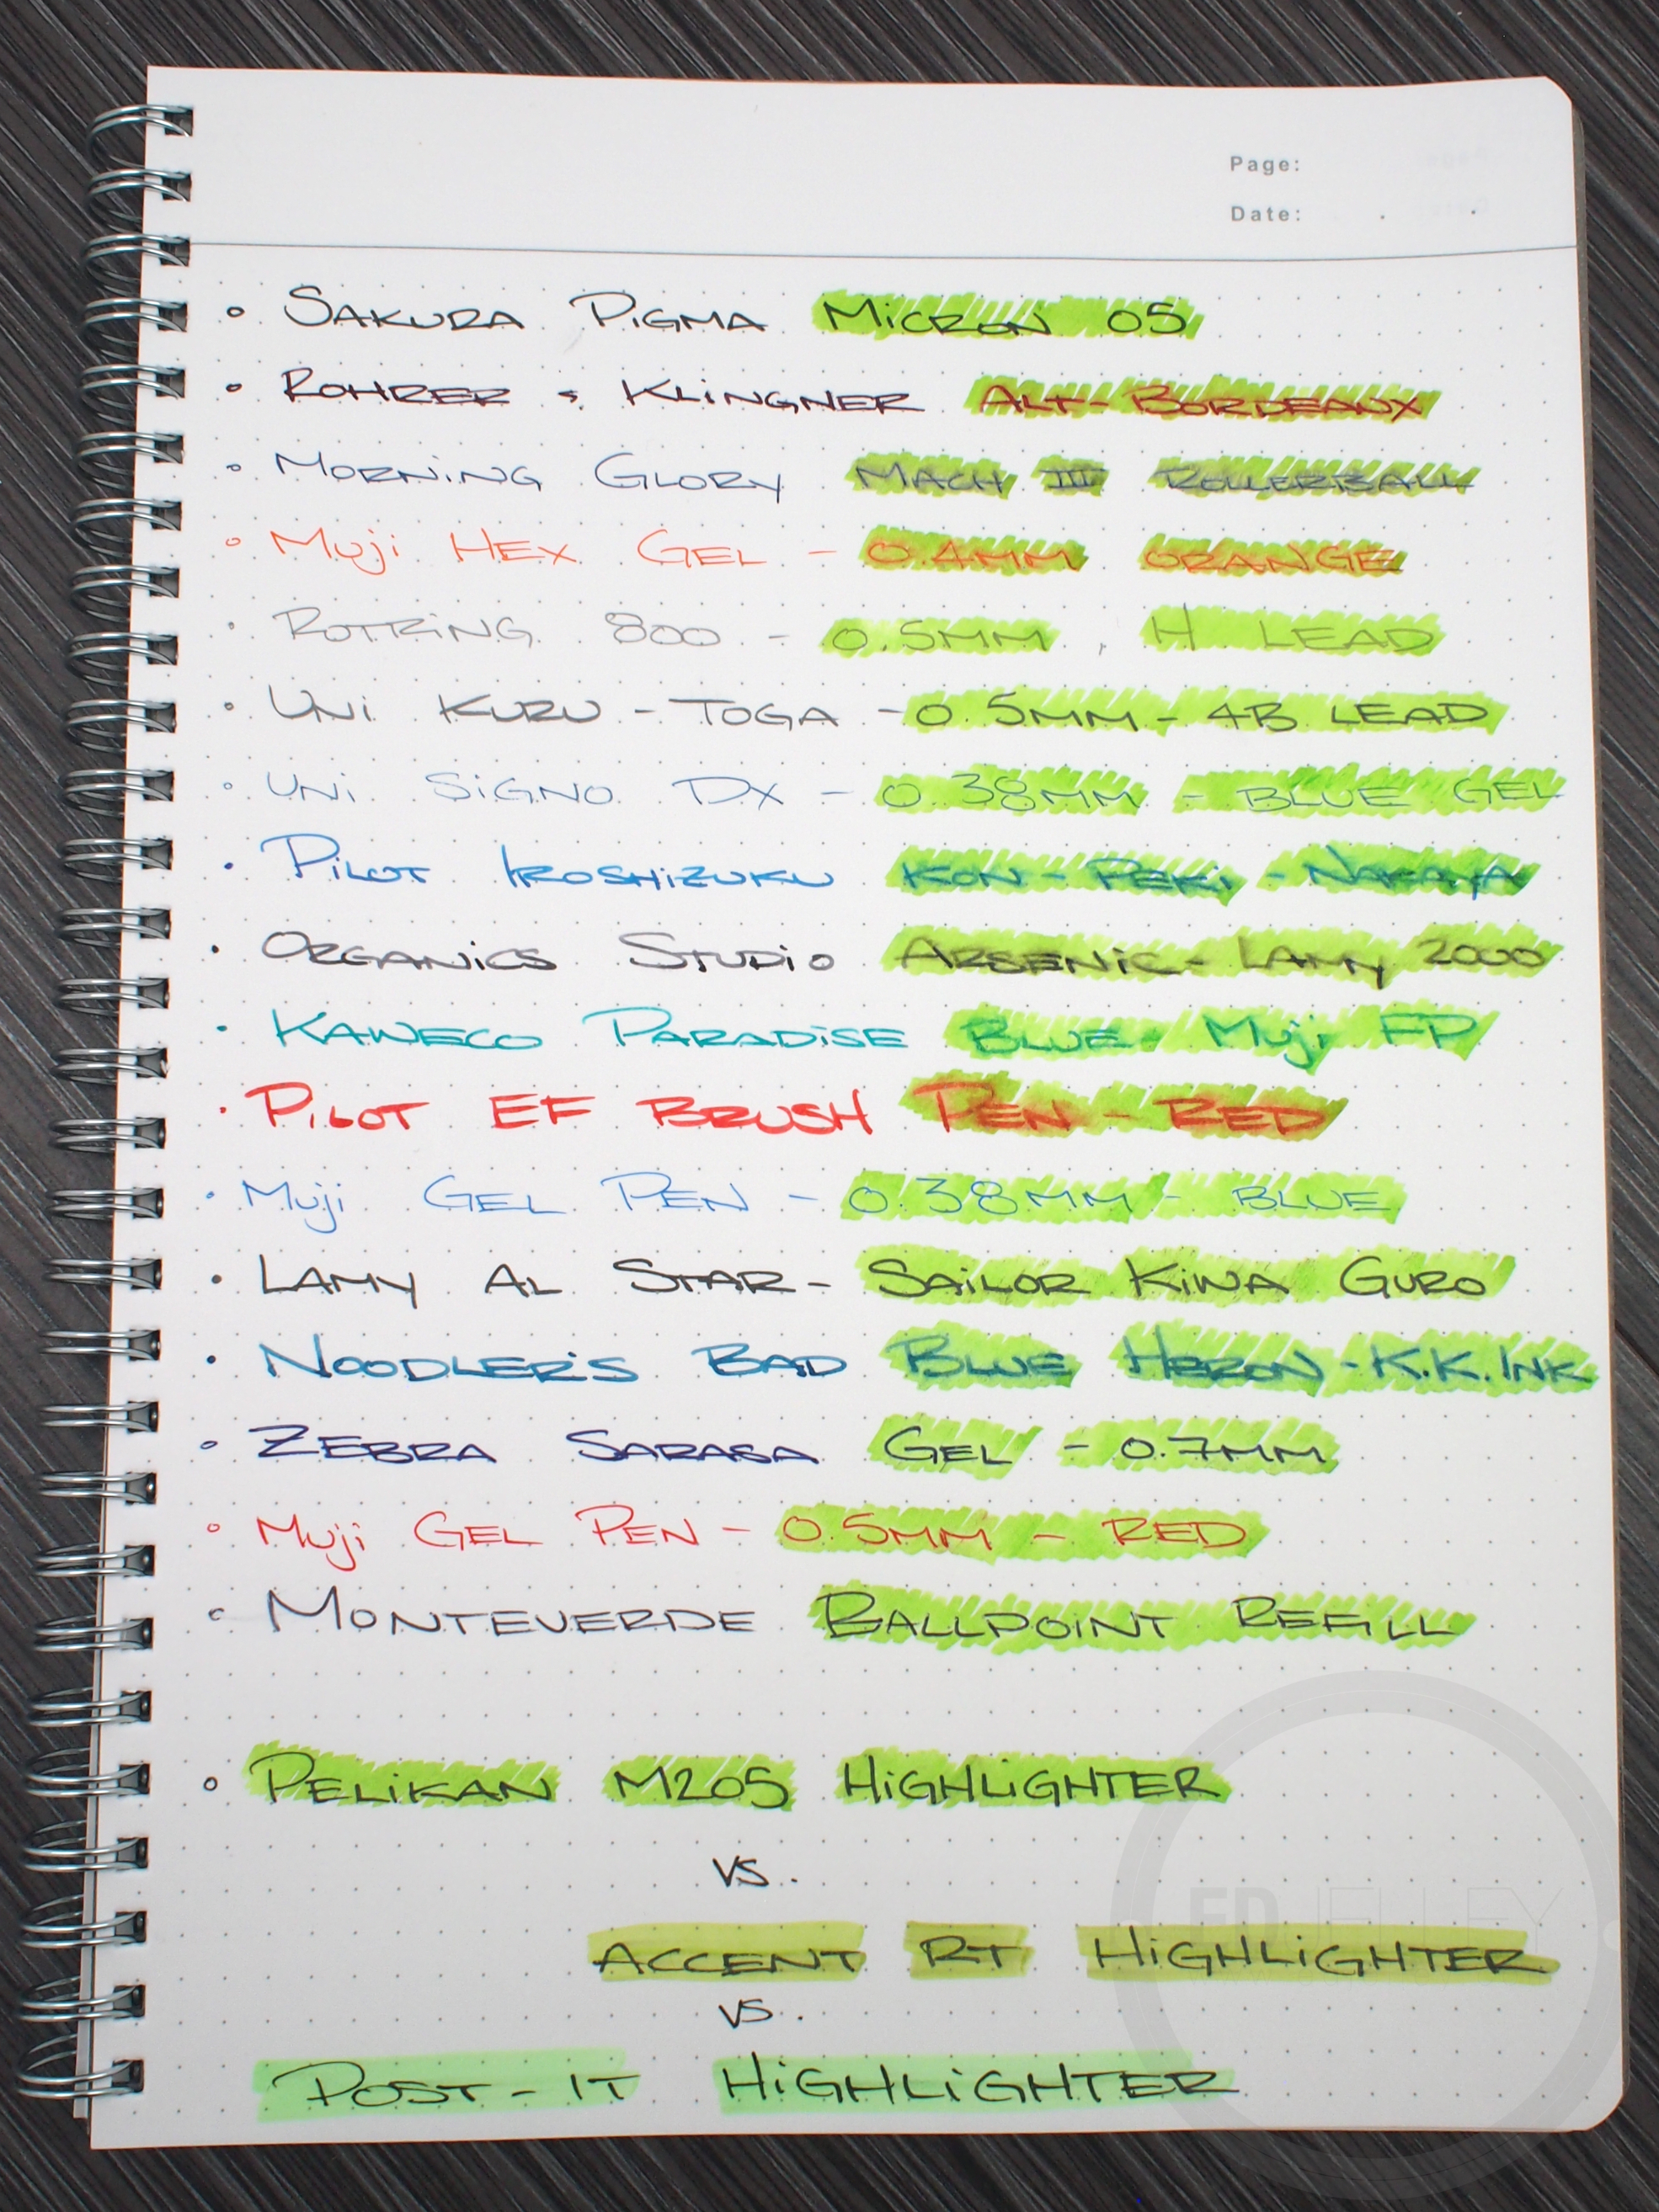 Page:
Date: . .
° SAKURA PIGMA MICRON 05
° ROHRER & KLINGNER ALT-BORDEAUX
° MORNING GLORY MACH III ROLLERBALL
° MUJI HEX GEL - 0.4MM ORANGE
° ROTRING 800 - 0.5MM, H LEAD
° UNI KURU-TOGA - 0.5MM - 4B LEAD
° UNI SIGNO DX - 0.38MM - BLUE GEL
• PILOT IROSHIZUKU KON-PEKI - NAKAYA
• ORGANICS STUDIO ARSENIC - LAMY 2000
• KAWECO PARADISE BLUE - MUJI FP
• PILOT EF BRUSH PEN - RED
• MUJI GEL PEN - 0.38MM - BLUE
• LAMY AL STAR - SAILOR KIWA GURO
• NOODLER'S BAD BLUE HERON - K.K. INK
° ZEBRA SARASA GEL - 0.7MM
° MUJI GEL PEN - 0.5MM - RED
° MONTEVERDE BALLPOINT REFILL
° PELIKAN M205 HIGHLIGHTER
VS.
ACCENT RT HIGHLIGHTER
VS.
POST-IT HIGHLIGHTER
ED JELLEY